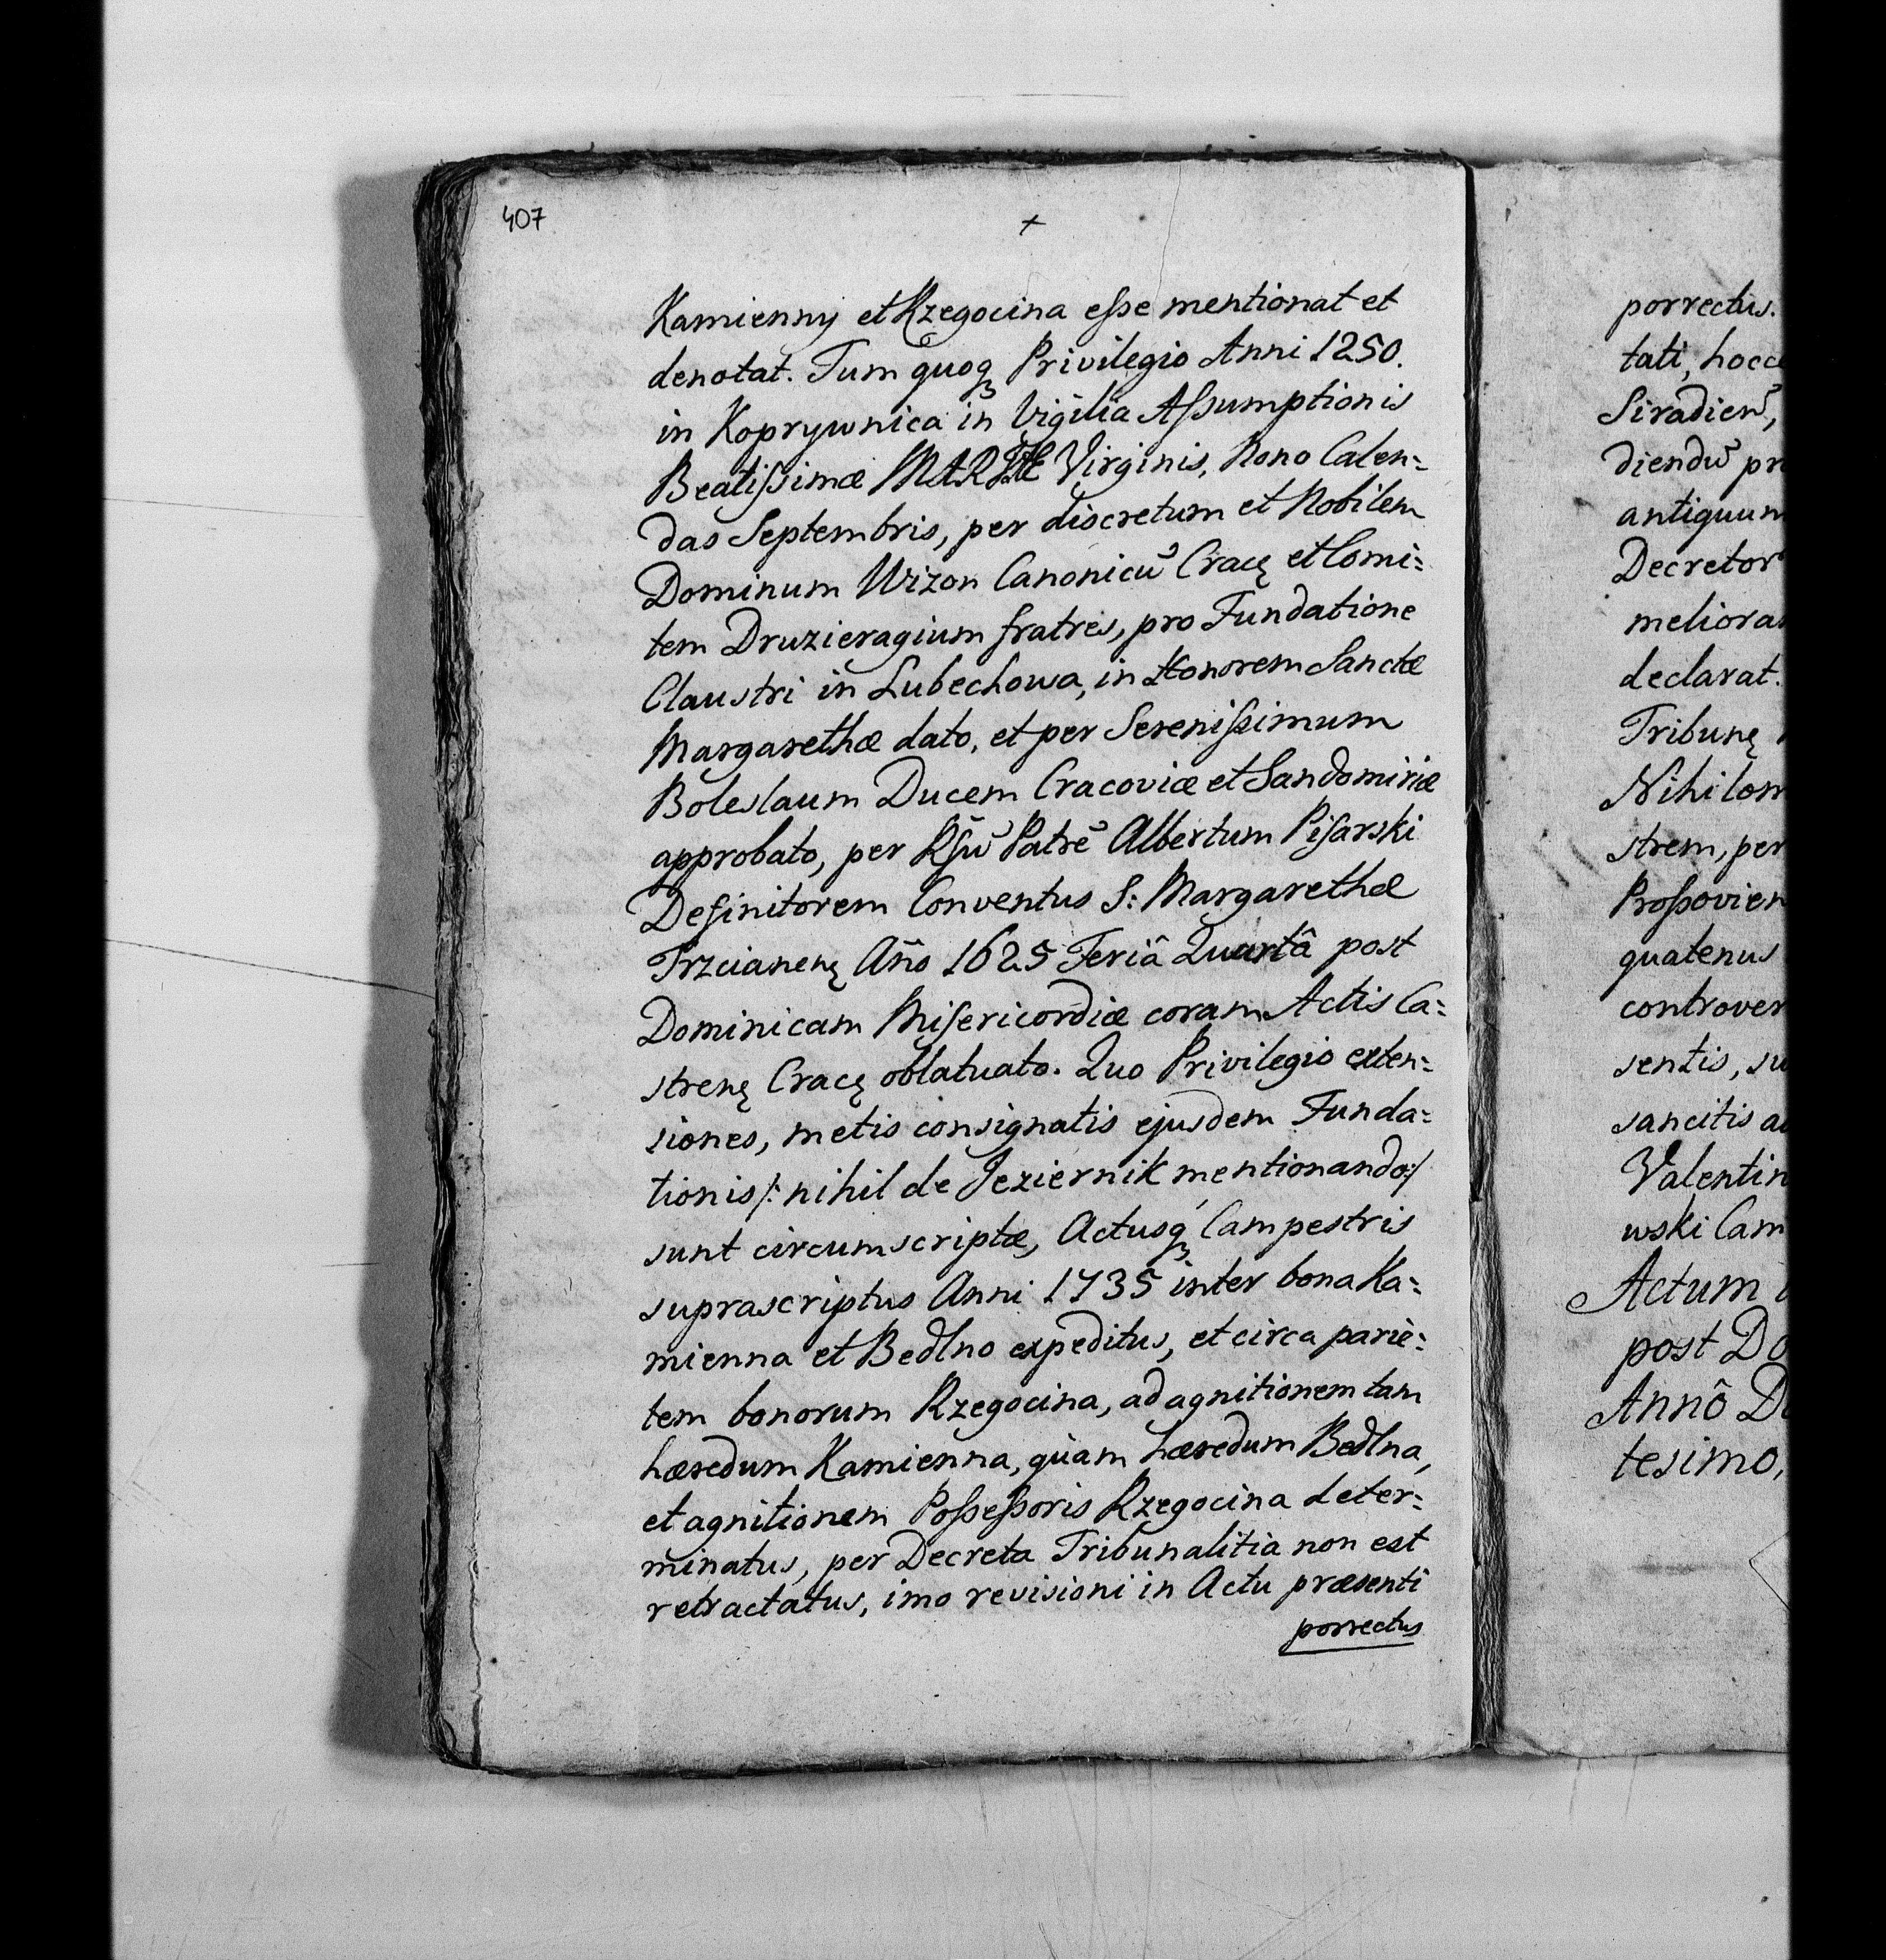 407
+
Kamienny et Rzegocina eſse mentionat et
denotat. Tum quoqꝫ Privilegio Anni 1250.
in Koprywnica in Vigilia Aſsumptionis
Beatiſsimæ MARIÆ Virginis, Nono Calen:
das Septembris, per discretum et Nobilem
Dominum Wizon Canonicũ Cracę et Comi:
tem Druzieragium fratres, pro Fundatione
Claustri in Lubechowa, in Honorem Sanctæ
Margarethæ dato, et per Sereniſsimum
Boleslaum Ducem Cracoviæ et Sandomiriæ
approbato, per Rſũ Patrẽ Albertum Piſarski
Definitorem Conventus S: Margarethæ
Trzcianenę Año 1625 Feriâ Quartâ post
Dominicam Miſericordiæ coram Actis Ca:
strenę Cracę oblatuato. Quo Privilegio exten:
siones, metis consignatis ejusdem Funda:
tionis /: nihil de Jeziernik mentionando:/
sunt circumscriptæ, Actusqꝫ Campestris
suprascriptus Anni 1735 inter bona Ka:
mienna et Bedlno expeditus, et circa parie:
tem bonorum Rzegocina, ad agnitionem tam
hæredum Kamienna, quam hæredum Bedlna,
et agnitionem Poſseſsoris Rzegocina deter:
minatus, per Decreta Tribunalitia non est
retractatus, imo revisioni in Actu præsenti
porrectus
porrectus.
tati, hocc
Siradień,
diendũ pr
antiquum
Decretor
meliora
declarat.
Tribunę
Nihilom
strem, per
Proſsovien
quatenus
controver
sentis, su
sancitis a
Valentin
wski Cam
Actum
post Do
Annô D
tesimo,